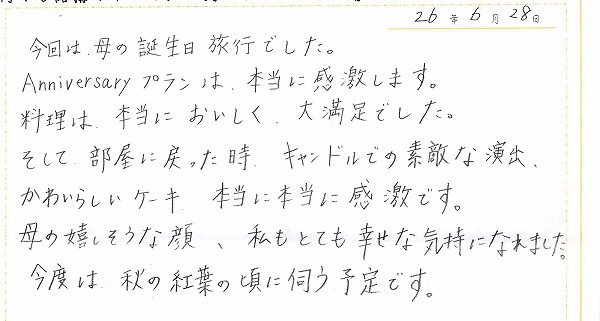 26年6月28日
今回は、母の誕生日旅行でした。
Anniversaryプランは、本当に感激します。
料理は、本当においしく、大満足でした。
そして、部屋に戻った時、キャンドルでの素敵な演出、
かわいらしいケーキ、本当に本当に感激です。
母の嬉しそうな顔、私もとても幸せな気持になれました。
今度は、秋の紅葉の頃に伺う予定です。